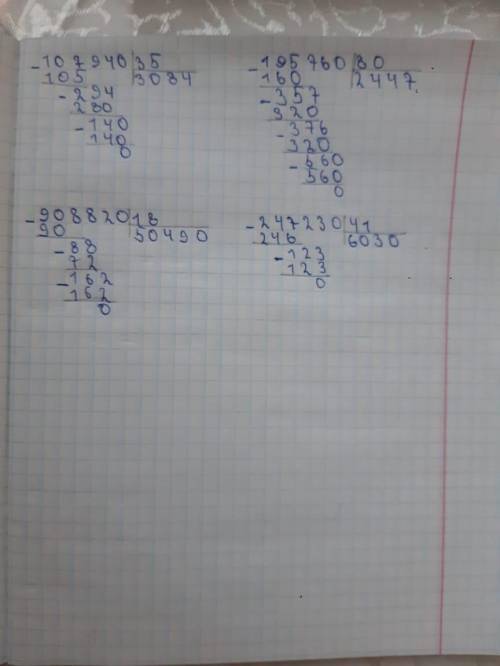 -107940|35
105|3084
-294
280
-140
140
0
-195760|80
160|2447
-357
320
-376
320
-560
560
0
-908820|18
90|50490
-88
72
-162
162
0
-247230|41
246|6030
-123
123
0